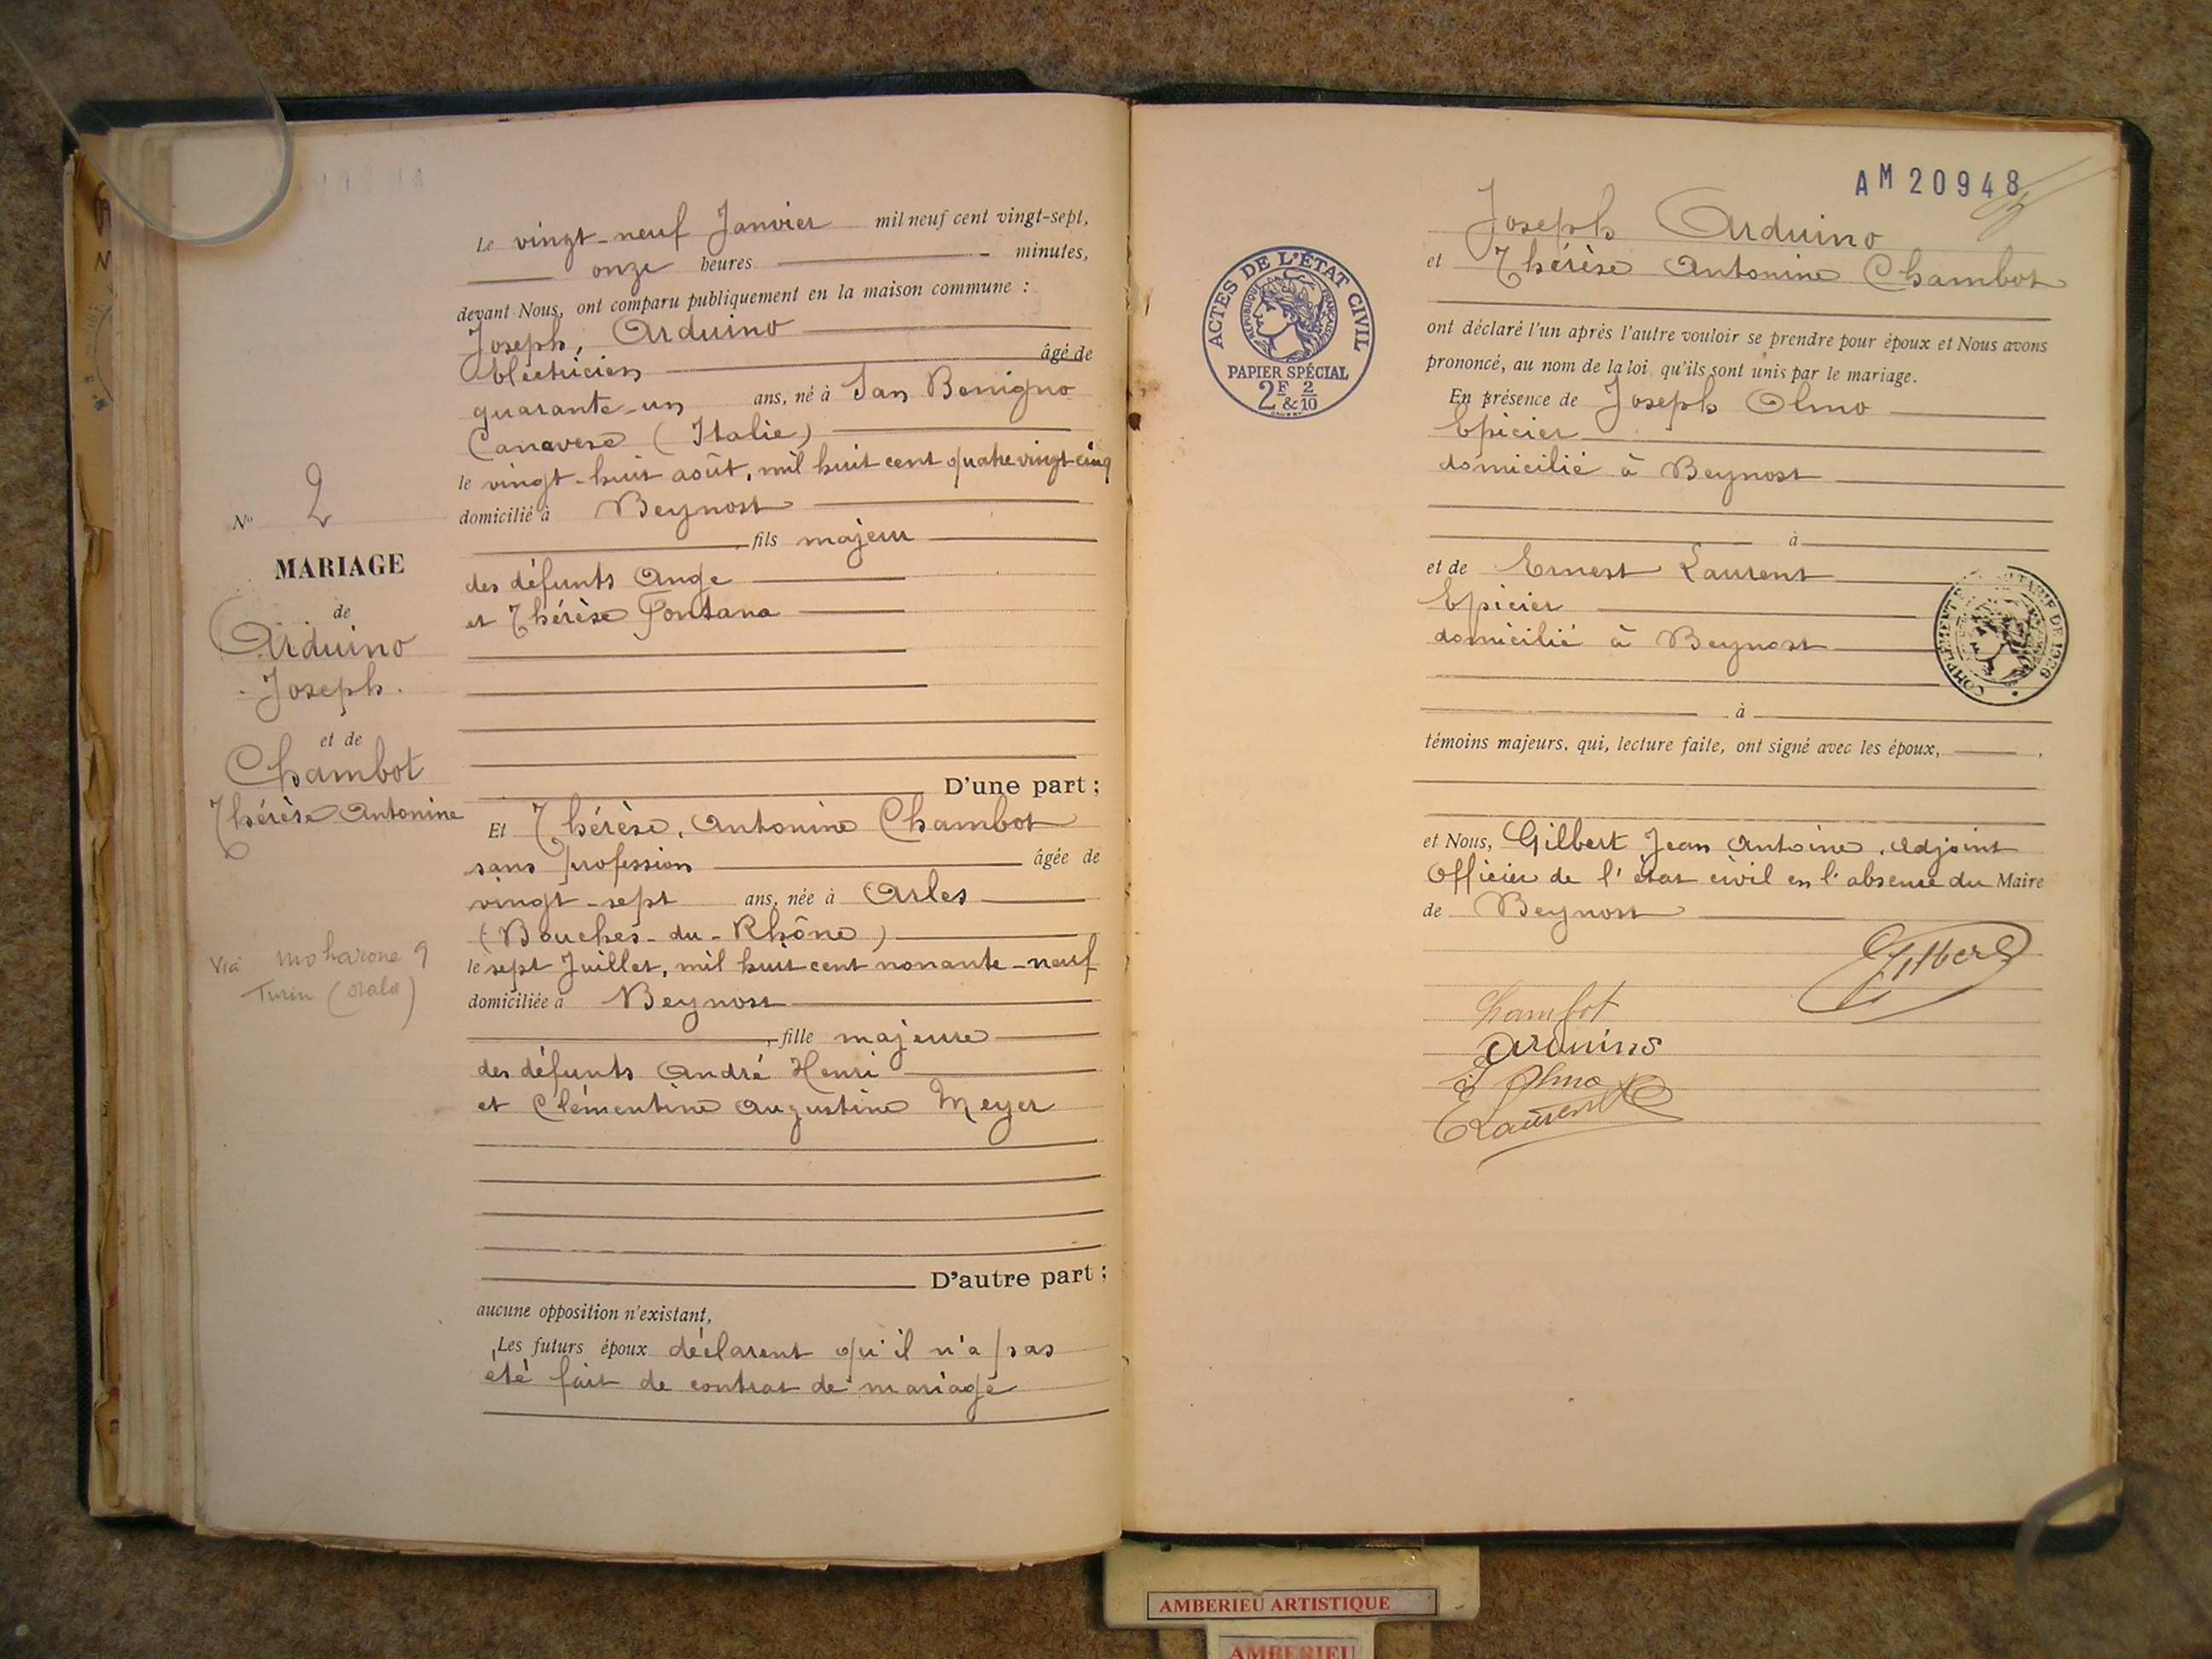 Le vingt-neuf Janvier mil neuf cent vingt-sept,
onze heures minutes,
devant Nous, ont comparu publiquement en la maison commune :
Joseph, Arduino
Electricien âgé de
quarante-un ans, né à San Benigno
Canavese (Italie)
le vingt-huit août, mil huit cent quatre vingt-cinq
domicilié à Beynost
, fils majeur
des défunts Ange
et Thérèse Fontana
D'une part ;
Et Thérèse, Antonine Chambot
sans profession âgée de
vingt-sept ans, née à Arles
(Bouches-du-Rhône)
le sept Juillet, mil huit cent nonante-neuf
domiciliée à Beynost
, fille majeure
des défunts André Henri
et Clémentine Augustine Meyer
D'autre part ;
aucune opposition n'existant,
Les futurs époux déclarent qu'il n'a pas
été fait de contrat de mariage
No 2
MARIAGE
de
Arduino
Joseph.
et de
Chambot
Thérèse Antonine
Via
Turin
AM20948
Joseph Arduino
et Thérèse Antonine Chambot
ACTES DE L'ÉTAT CIVIL
RÉPUBLIQUE FRANÇAISE
PAPIER SPÉCIAL
2F & 2/10
ont déclaré l'un après l'autre vouloir se prendre pour époux et Nous avons
prononcé, au nom de la loi qu'ils sont unis par le mariage.
En présence de Joseph Olmo
Epicier
domicilié à Beynost
à
et de Ernest Laurent
Epicier
domicilié à Beynost
COMPLÉMENT DE 1926
à
témoins majeurs, qui, lecture faite, ont signé avec les époux,
et Nous, Gilbert Jean Antoine, Adjoint
Officier de l'état civil en l'absence du Maire
de Beynost
Gilbert
Chambot
Arduino
J Olmo
E Laurent
AMBERIEU ARTISTIQUE
AMBERIEU